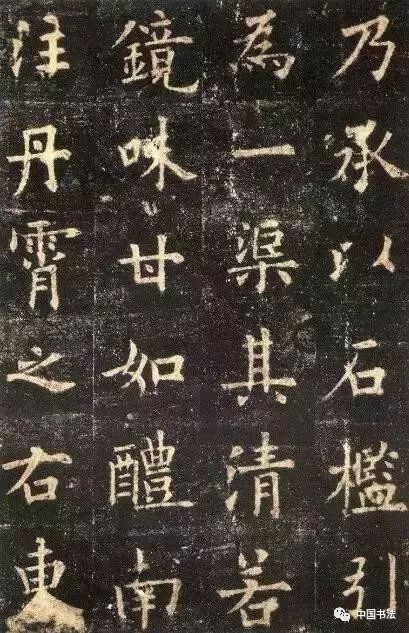 乃承以石檻引
為一渠其清若
鏡味甘如醴南
注丹霄之右東
中国书法